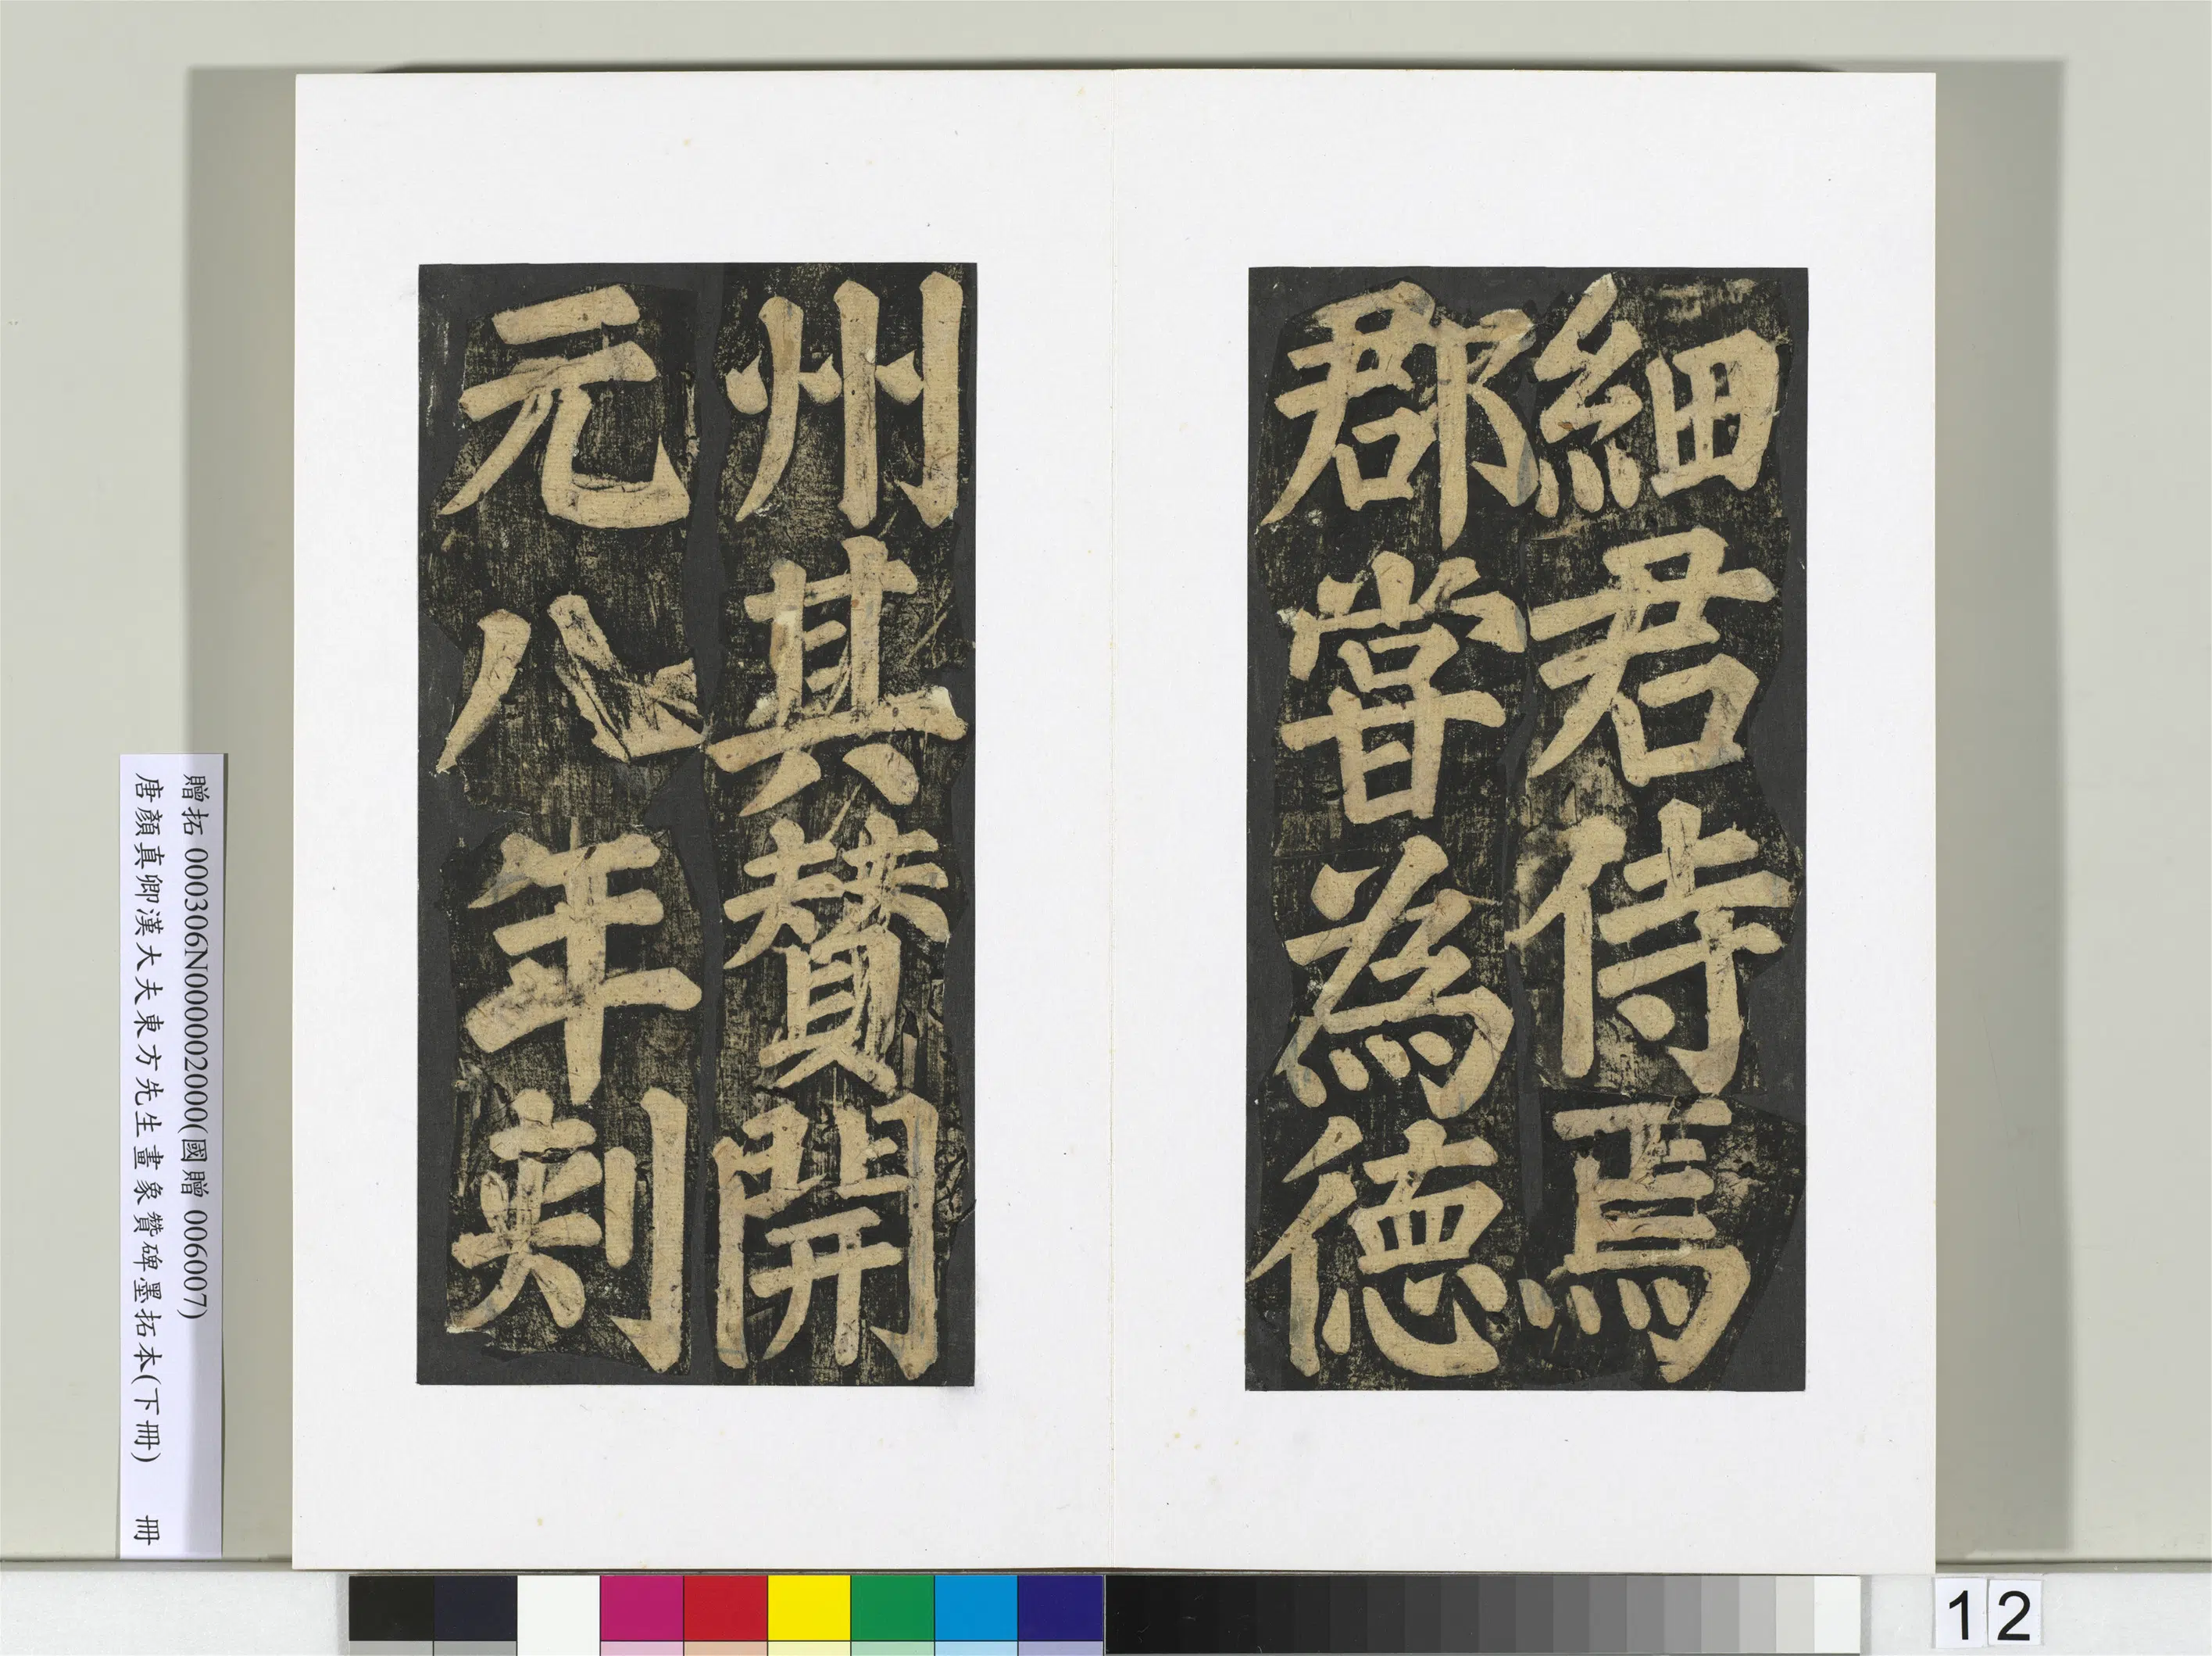 細君侍焉
郡嘗為德
州其贊開
元八年刻
贈拓 000306N000002000(國贈 006007)
唐顏真卿漢大夫東方先生畫象贊碑墨拓本(下冊) 冊
12